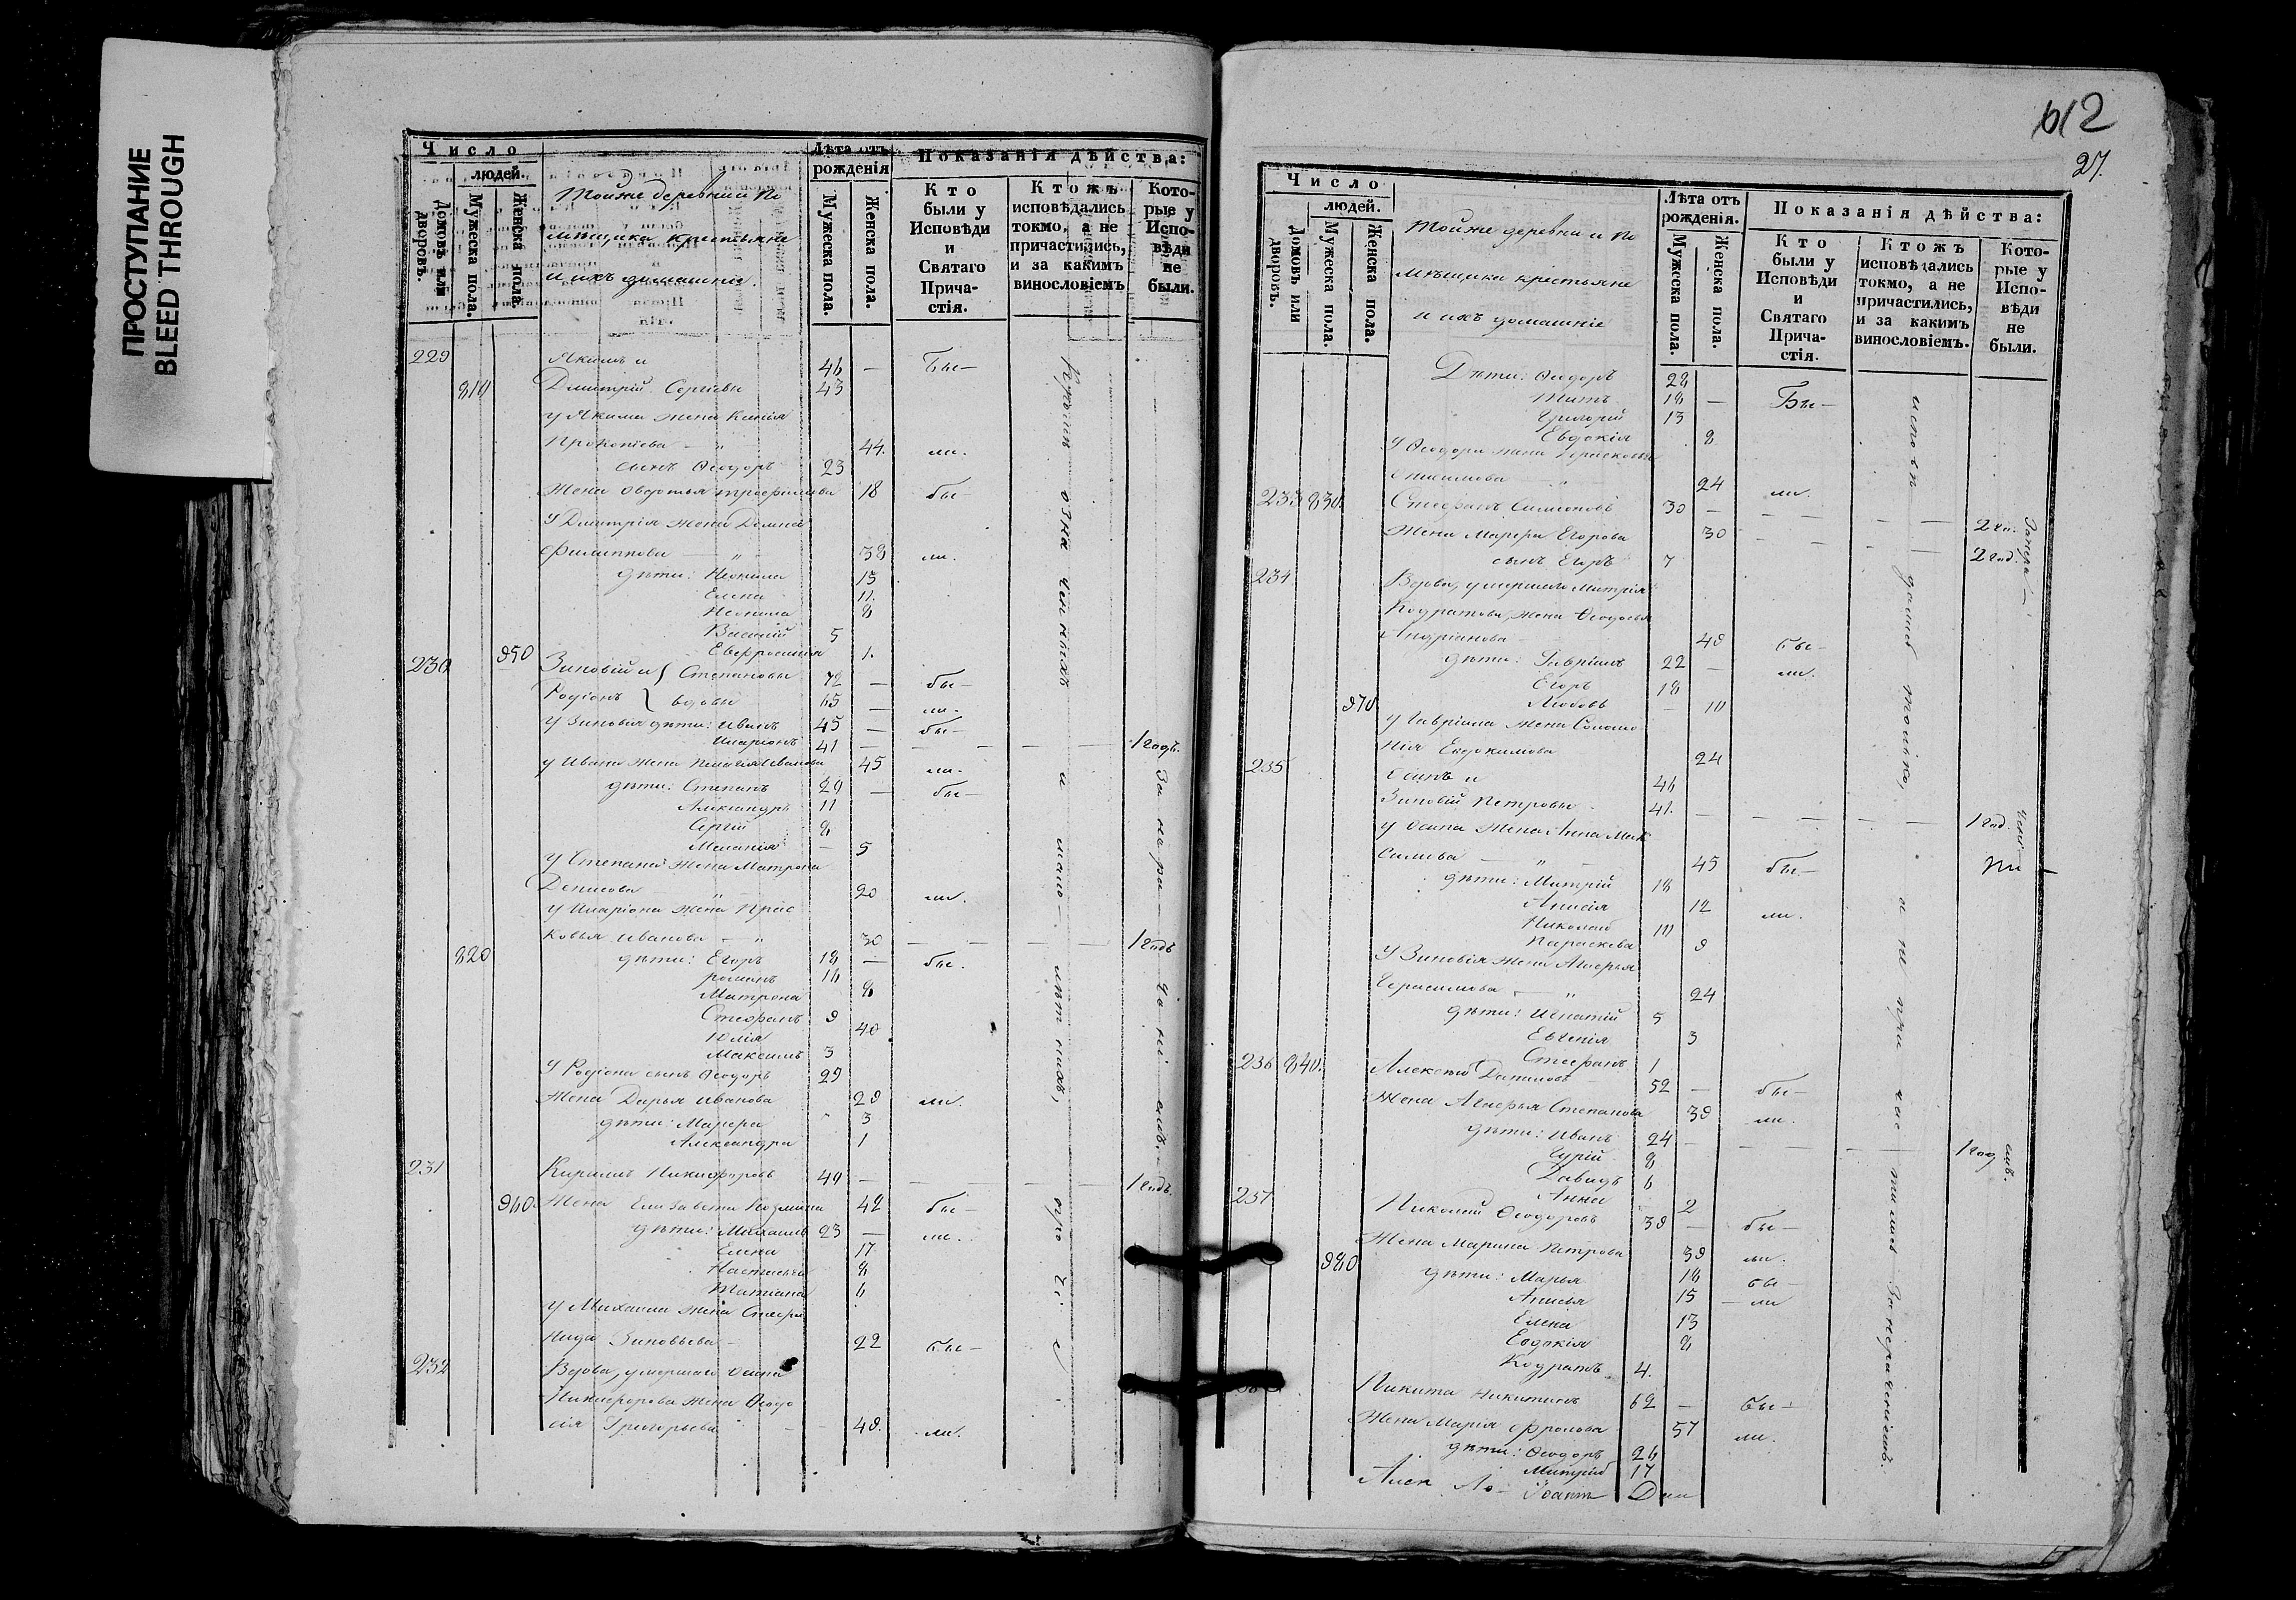 ПРОСТУПАНИЕ
BLEED THROUGH
Число
людей.
Домовъ или дворовъ.
Мужеска пола.
Женска пола.
Тойже деревни По
мѣщика крестьяне
и ихъ домашніе.
Лѣта отъ рожденія
Мужеска пола.
Женска пола.
Показанія дѣйства:
Кто были у Исповѣди и Святаго Прича-стія.
Ктожъ исповѣдались токмо, а не причастились, и за какимъ винословіемъ
Кото-рые у Испо-вѣди не были.
229 Якимъ и 46 — Бы—
810 Дмитрій Сергіевы 43
у Якима жена Ксенія
Прокопіева — " 44. ли.
сынъ Ѳеодоръ 23
Жена Авдотья Трофимова 18 бы—
У Дмитрія жена Домна
Филиппова — " 38 ли.
дѣти: 15
Елена 11.
Неонила 8
Василій 5
950 Евфросинія 1.
230 Зиновій и Степановы 72 — бы—
Родіонъ вдовы 65 — ли.
У Зиновія дѣти: Иванъ 45 — бы—
Иларіонъ 41 — — — — — 1 годъ.
у Ивана жена Пелагія Иванова 45 ли.
дѣти: Степанъ 20 — бы—
Александръ 11
Сергій 8
Меланія — 5
У Степана жена Матрона
Денисова — " 20 ли.
У Иларіона жена Прас
ковья Иванова — " 30 — — — — 1 годъ
820 дѣти: Егоръ 18 — бы.
романъ 16
Матрона 8
Стефанъ 9
Юлія 40
Максимъ 3
У Родіона сынъ Ѳеодоръ 29
Жена Дарья Иванова 29 ли.
дѣти: Марѳа 3
Александра 1
231 Кириллъ Никифоровъ 49 — — — — 1 годъ.
960. Жена Елизавета Козмина 42 бы—
дѣти: Михаилъ 23 — ли.
Елена 17
Настасья 8
Татіана 6
У Михаила жена Стефа
нида Зиновьева 22 бы—
232 Вдова, умершаго Осипа
Никифорова жена Ѳеодо
сія Григорьева — 48. ли.
Кромѣ означенныхъ и мало-лѣтнихъ,
За нера
612
27.
Число
людей.
Домовъ или дворовъ.
Мужеска пола.
Женска пола.
Тойже деревни и По
мѣщика крестьяне
и ихъ домашніе
Лѣта отъ рожденія.
Мужеска пола.
Женска пола.
Показанія дѣйства:
Кто были у Исповѣди и Святаго Прича-стія.
Ктожъ исповѣдались токмо, а не причастились, и за какимъ винословіемъ.
Кото-рые у Испо-вѣди не были.
Дѣти: Ѳеодоръ 28
Титъ 18 — Бы—
Григорій 13
Евдокія 8
У Ѳеодора жена Параскевья
Онисимова 24 ли.
233 830. Стефанъ Симоновъ 30 — — — — — 2 го.
Жена Марѳа Егорова 30 — — — 2 год.
сынъ Егоръ 7
234 Вдова, умершаго Митрія
Кодратова, жена Ѳеодосья
Андріанова 48 бы—
дѣти: Гавріилъ 22 — ли.
Егоръ 18
970 Любовь — 10
У Гавріила жена Соломо
нія Евдокимова 24
235 Осипъ и 46
Зиновій Петровы 41. — — — — — 1 год.
У Осипа жена Анна Мак
симова — " — 45 бы—
дѣти: Митрій 18
Анисія 12 ли.
Николай 10
Параскева 9
У Зиновія жена Агафья
Герасимова — " 24
дѣти: Игнатій 5
Евгенія 3
Стефанъ 1
236 840. Алексѣй Даниловъ 52 — бы—
Жена Агафья Степанова 39 ли.
дѣти: Иванъ 24 — — — — 1 год
Гурій 8
Давидъ 6
Анна 2
237 Николай Ѳеодоровъ 39 — бы—
Жена Марина Петрова 39 ли.
980 дѣти: Марья 18 бы—
Анисья 15 — ли
Елена 13
Евдокія 8
Кодратъ 4.
Никита Никитинъ 62 — бы—
Жена Марія Фролова 57 ли.
дѣти: Ѳеодоръ 26
Митрій 17
Іоаннъ
исповѣдались только, а не причастились За нераченіемъ.